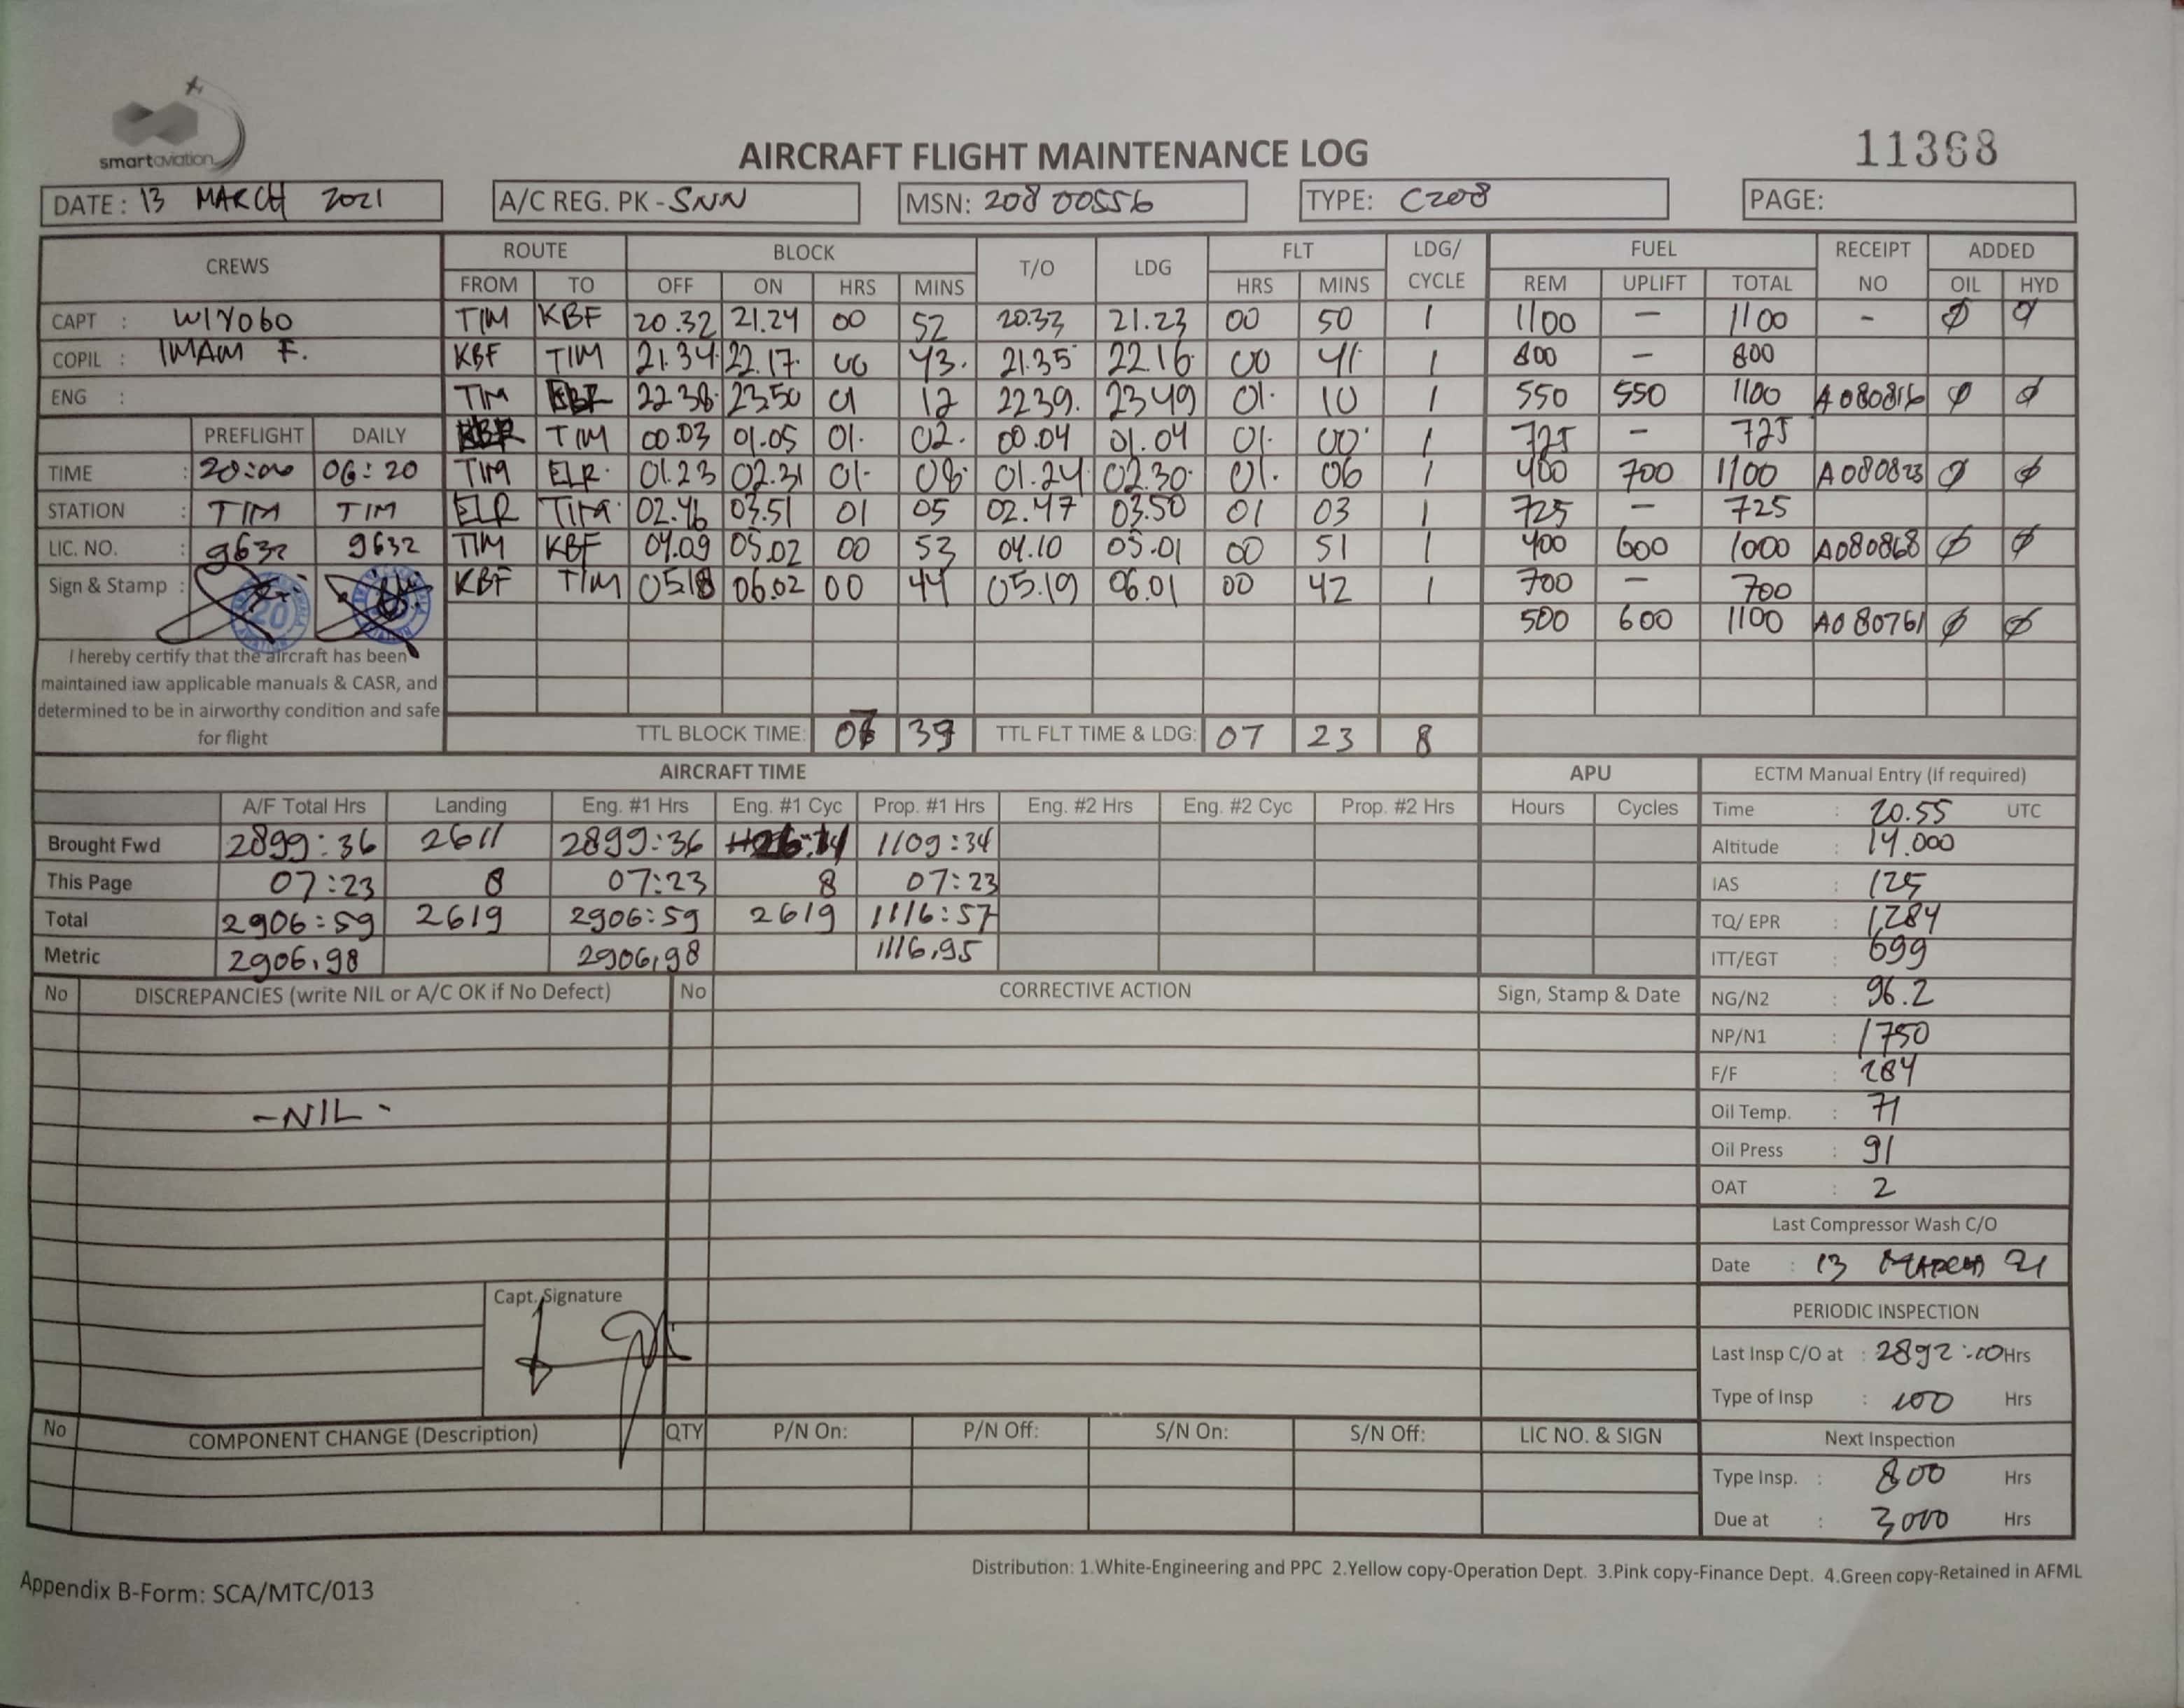 smartaviation
AIRCRAFT FLIGHT MAINTENANCE LOG
11368
DATE : 13 MARCH 2021 A/C REG. PK - SNN MSN: 208 00556 TYPE: C208 PAGE:
CREWS ROUTE BLOCK T/O LDG FLT LDG/ CYCLE FUEL RECEIPT NO ADDED
FROM TO OFF ON HRS MINS HRS MINS REM UPLIFT TOTAL OIL HYD
CAPT : WIYOBO TIM KBF 20.32 21.24 00 52 20.33 21.23 00 50 1 1100 - 1100 - ϕ ϕ
COPIL : IMAM F. KBF TIM 21.34 22.17. 00 43. 21.35 22.16 00 41. 1 800 - 800
ENG : TIM 22.38. 23.50 01 12 2239. 2349 01. 10 1 550 550 1100 A080816 ϕ ϕ
PREFLIGHT DAILY TIM 00.03 01.05 01. 02. 00.04 01.04 01. 00 1 725 - 725
TIME : 20:00 06:20 TIM ELR. 01.23 02.31 01. 08 01.24 02.30. 01. 06 1 400 700 1100 A080823 ϕ ϕ
STATION : TIM TIM ELR TIM 02.46 03.51 01 05 02.47 03.50 01 03 1 725 - 725
LIC. NO. : 9632 9632 TIM KBF 04.09 05.02 00 53 04.10 05.01 00 51 1 400 600 1000 A080868 ϕ ϕ
Sign & Stamp : KBF TIM 0518 06.02 00 44 05.19 06.01 00 42 1 700 - 700
500 600 1100 A080761 ϕ ϕ
I hereby certify that the aircraft has been
maintained iaw applicable manuals & CASR, and
determined to be in airworthy condition and safe
for flight
TTL BLOCK TIME: 07 39 TTL FLT TIME & LDG: 07 23 8
AIRCRAFT TIME APU ECTM Manual Entry (If required)
A/F Total Hrs Landing Eng. #1 Hrs Eng. #1 Cyc Prop. #1 Hrs Eng. #2 Hrs Eng. #2 Cyc Prop. #2 Hrs Hours Cycles Time : 20.55 UTC
Brought Fwd 2899:36 2611 2899:36 1109:34 Altitude : 14.000
This Page 07:23 8 07:23 8 07:23 IAS : 125
Total 2906:59 2619 2906:59 2619 1116:57 TQ/ EPR : 1,284
Metric 2906,98 2906,98 1116,95 ITT/EGT : 699
No DISCREPANCIES (write NIL or A/C OK if No Defect) No CORRECTIVE ACTION Sign, Stamp & Date NG/N2 : 96.2
NP/N1 : 1750
F/F : 284
-NIL- Oil Temp. : 71
Oil Press : 91
OAT : 2
Last Compressor Wash C/O
Date : 13 MARCH 21
Capt. Signature
PERIODIC INSPECTION
Last Insp C/O at : 2892:10 Hrs
Type of Insp : 100 Hrs
No COMPONENT CHANGE (Description) QTY P/N On: P/N Off: S/N On: S/N Off: LIC NO. & SIGN Next Inspection
Type Insp. : 800 Hrs
Due at : 3000 Hrs
Distribution: 1.White-Engineering and PPC 2.Yellow copy-Operation Dept. 3.Pink copy-Finance Dept. 4.Green copy-Retained in AFML
Appendix B-Form: SCA/MTC/013